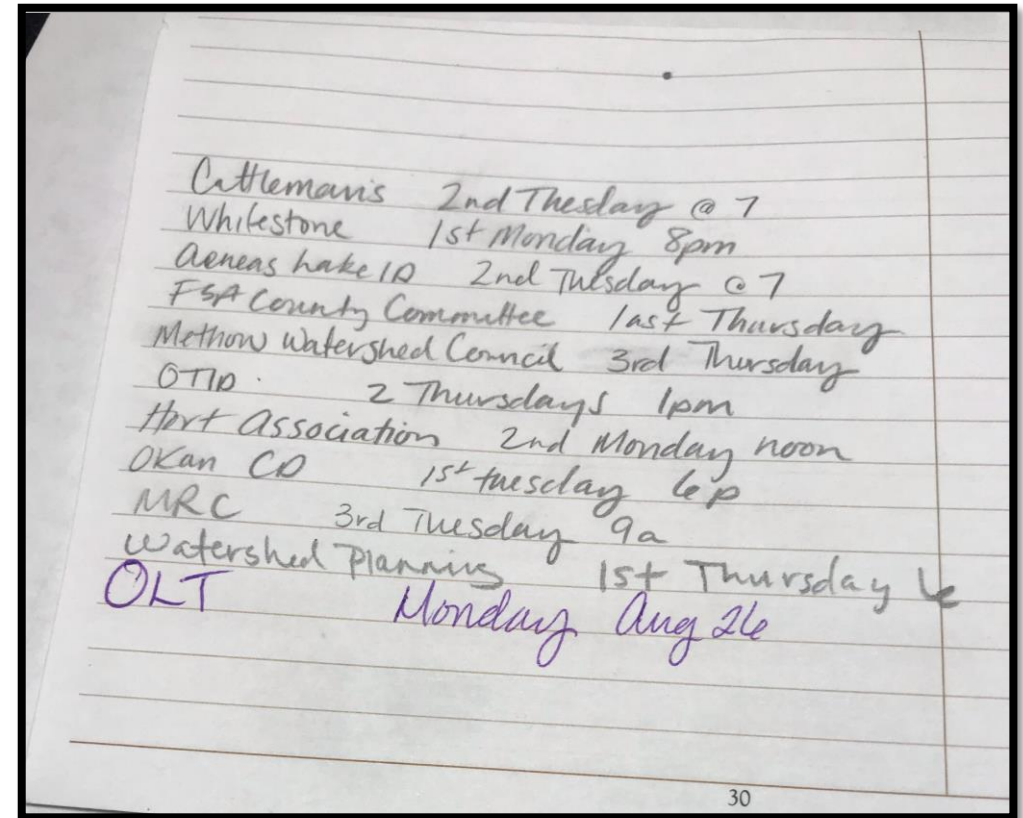 Cattleman's 2nd Thesday @ 7
Whitestone 1st Monday 8pm
Aeneas Lake ID 2nd Tuesday @ 7
FSA County Committee last Thursday
Methow Watershed Council 3rd Thursday
OTID. 2 Thursdays 1pm
Hort Association 2nd Monday noon
OKan CD 1st tuesday 6p
MRC 3rd Tuesday 9a
Watershed Planning 1st Thursday 6
OLT Monday Aug 26
30